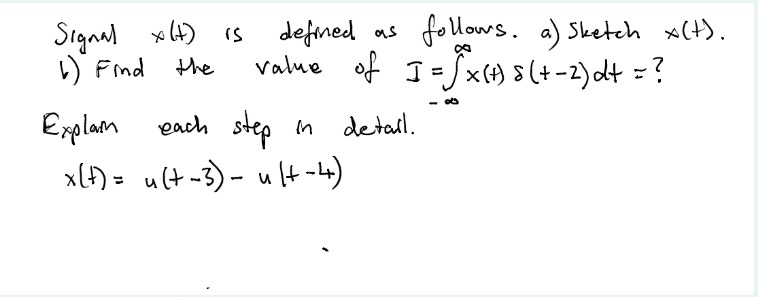 Signal x(t) is defined as follows. a) Sketch x(t).
b) Find the value of I = ∫_{-∞}^{∞} x(t) δ(t-2) dt = ?
Explain each step in detail.
x(t) = u(t-3) - u(t-4)